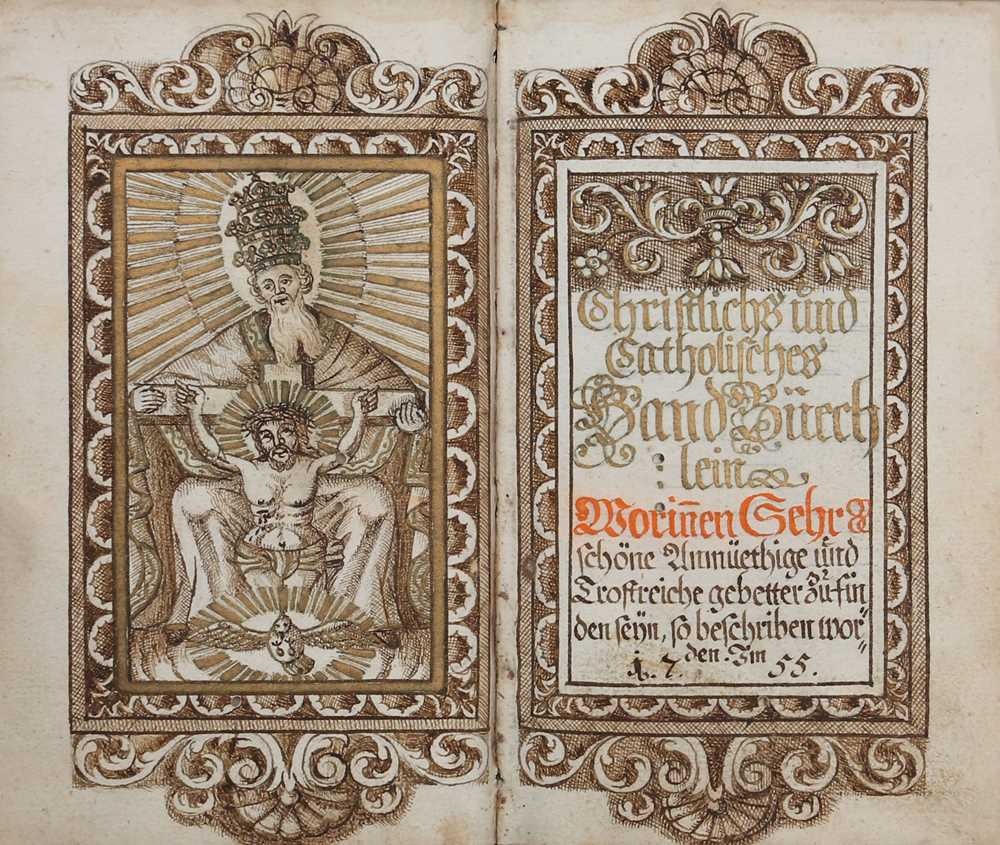 Christlichs und
Catholisches
Hand Büech
: lein
Worin̅en Sehr
schöne Anmüethige und
Trostreiche gebetter zu fin
den seÿn, so beschriben wor„
den. Im
1. 7. 55.